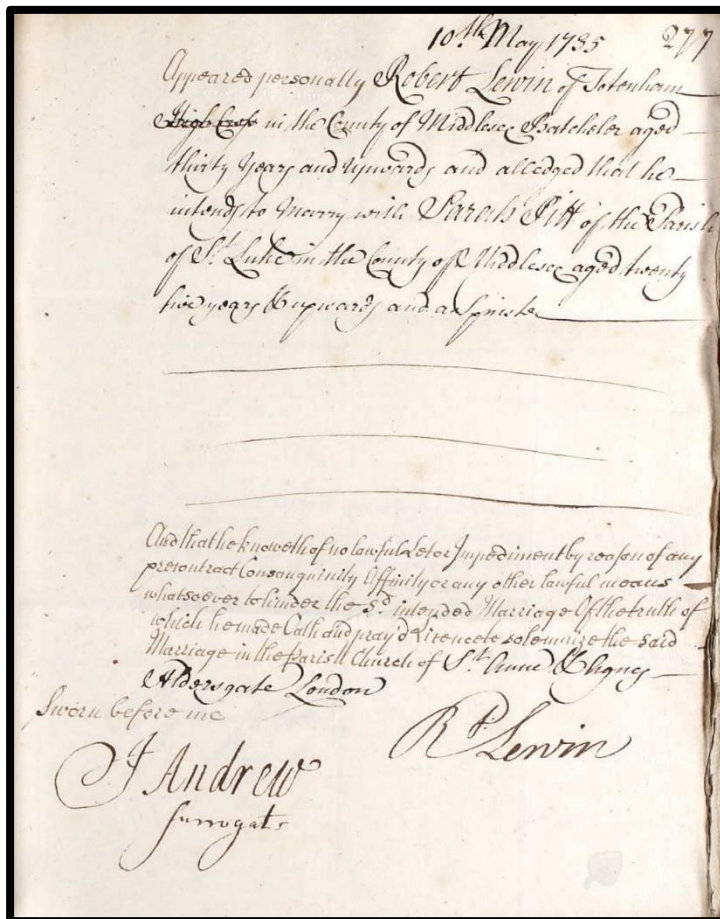 10.th May 1735 277
Appeared personally Robert Lewin of Totenham
High Cross in the County of Middlesex Batcheler aged
thirty Years and Upwards and alledged that he
intends to Marry with Sarah Pitt of the Parish
of St. Luke in the County of Middlesex aged twenty
five years & upwards and a Spinster
And that he knoweth of no lawful Let or Impediment by reason of any
precontract Consanguinity Affinity or any other lawful means
whatsoever to hinder the sd. intended Marriage Of the truth of
which he made Oath and pray'd Licence to solemnize the said
Marriage in the Parish Church of St. Anne & Agnes
Aldersgate London
Sworn before me
Rt. Lewin
J Andrew
Surrogate